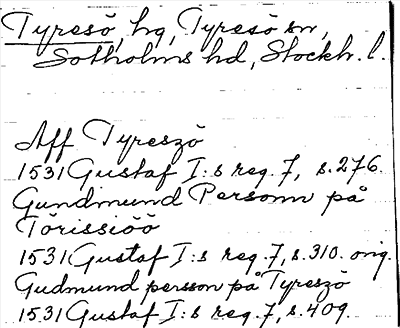 Tyresö, hg, Tyresö sn,
Sotholms hd, Stockh. l.
Aff Tyreszö
1531 Gustaf I:s reg. 7, s. 276.
Gundmund Personn på
Törissiöö
1531 Gustaf I:s reg. 7, s. 310. orig.
Gudmund persson på Tyreszö
1531 Gustaf I:s reg. 7, s. 409.